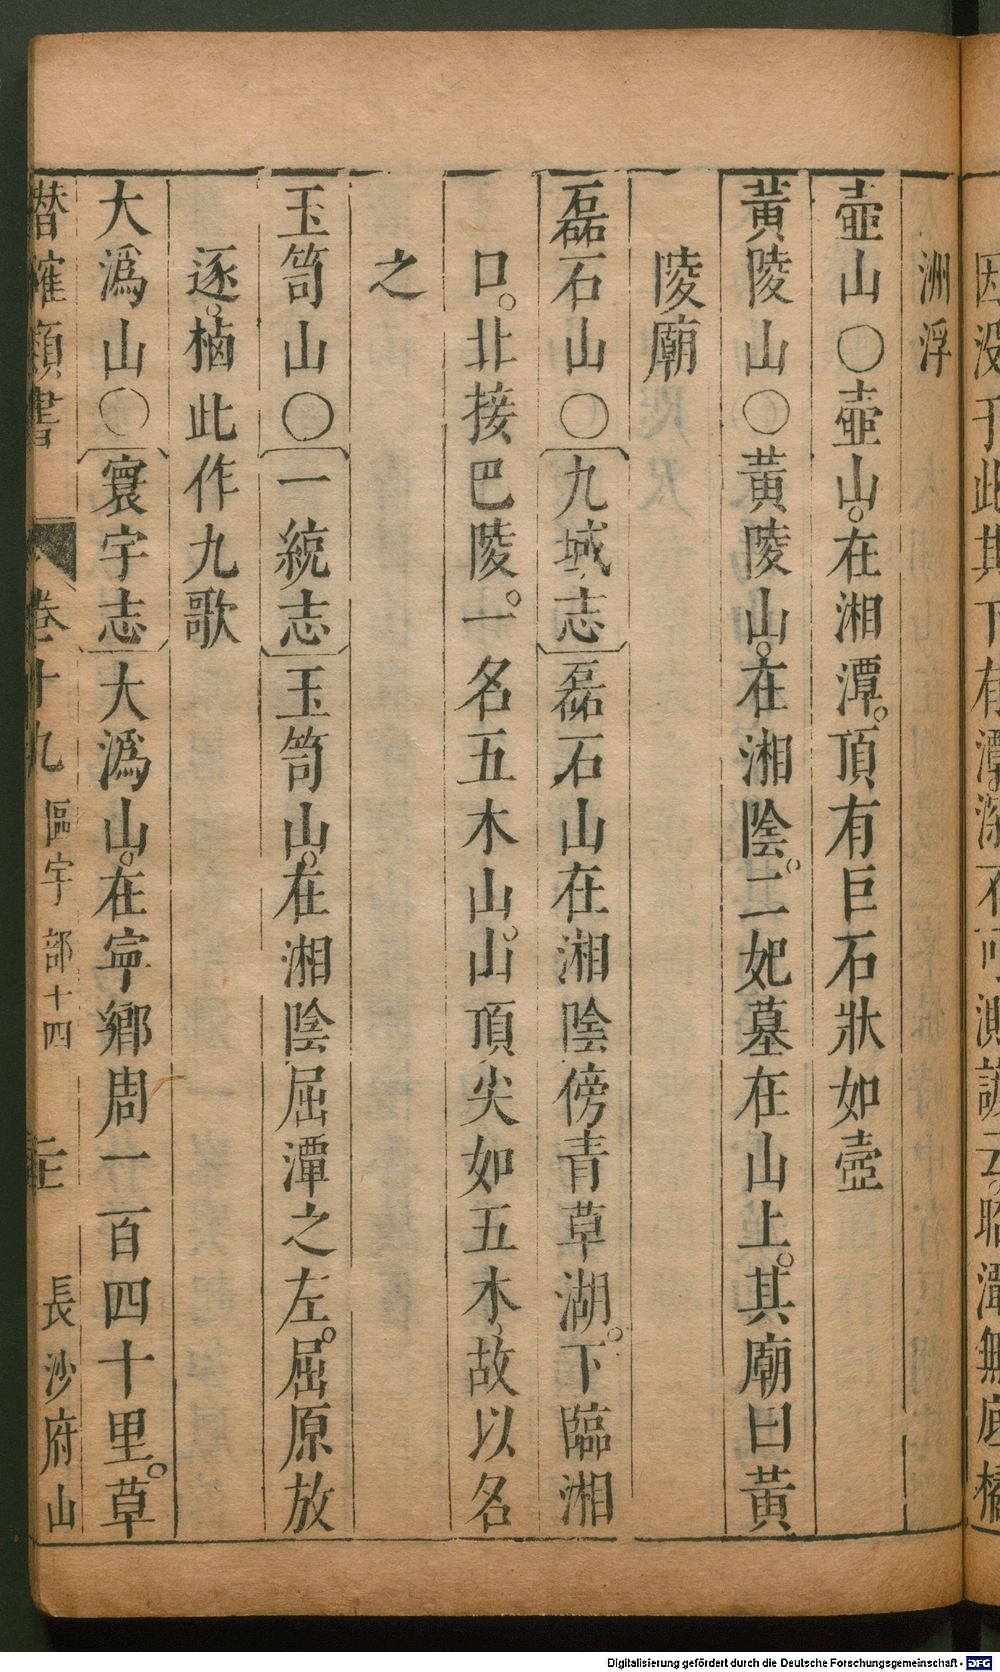 因沒于此其下有潭深不可測諺云昭潭無底橘
洲浮
壺山○壺山。在湘潭。頂有巨石狀如壺
黃陵山○黃陵山。在湘陰。二妃墓在山上。其廟曰黃
陵廟
磊石山○〔九域志〕磊石山在湘陰傍青草湖。下臨湘
口。北接巴陵。一名五木山。山頂尖如五木、故以名
之
玉笥山○〔一統志〕玉笥山。在湘陰屈潭之左。屈原放
逐。栖此作九歌
大潙山○〔寰宇志〕大潙山。在寧鄉周一百四十里。草
潛確類書 卷十九 區宇部十四 長沙府山
Digitalisierung gefördert durch die Deutsche Forschungsgemeinschaft - DFG